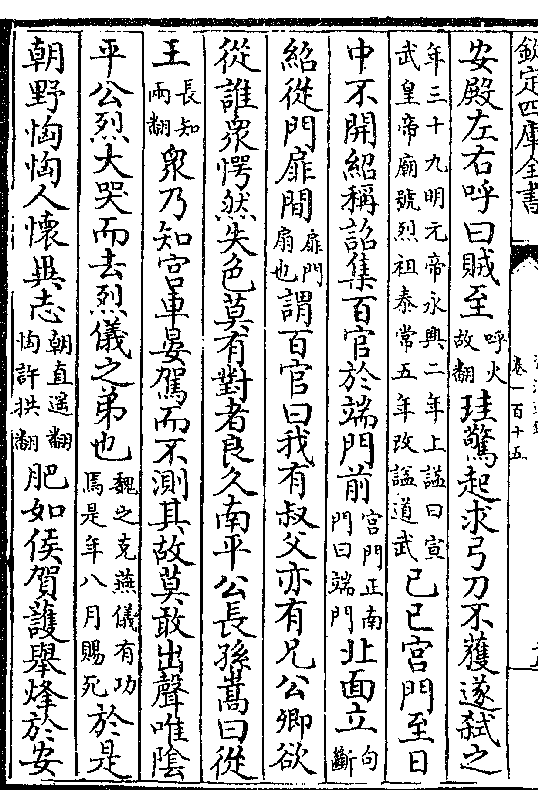 欽定四庫全書
卷一百十五
安殿左右呼曰賊至呼火故翻珪驚起求弓刀不獲遂弑之
年三十九明元帝永興二年上諡曰宣武皇帝廟號烈祖泰常五年改諡道武己巳宮門至日
中不開紹稱詔集百官於端門前宮門正南門曰端門北面立句斷
紹從門扉間扉門扇也謂百官曰我有叔父亦有兄公卿欲
從誰衆愕然失色莫有對者良久南平公長孫嵩曰從
王長知兩翻衆乃知宮車晏駕而不測其故莫敢出聲唯陰
平公烈大哭而去烈儀之弟也魏之克燕儀有功馬是年八月賜死於是
朝野恟恟人懷異志朝直遥翻恟許拱翻肥如侯賀護舉烽於安